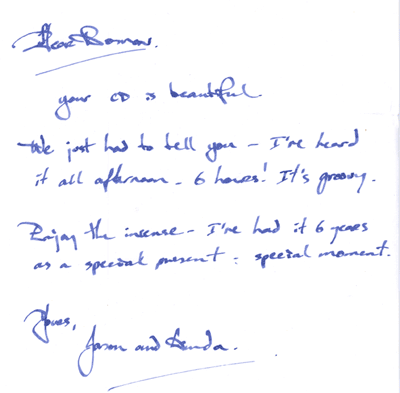 Dear
your CD is beautiful
We just had to tell you - I've heard
it all afternoon - 6 hours! It's groovy.
Enjoy the incense - I've had it 6 years
as a special present : special moment.
Yours,
Jason and